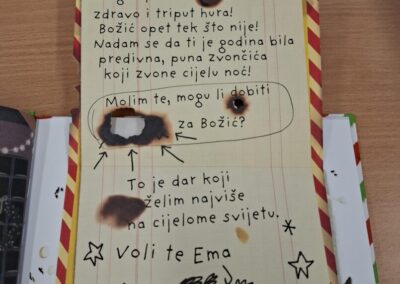 zdravo i triput hura!
Božić opet tek što nije!
Nadam se da ti je godina bila
predivna, puna zvončića
koji zvone cijelu noć!
Molim te, mogu li dobiti
za Božić?
To je dar koji
želim najviše
na cijelome svijetu.
Voli te Ema